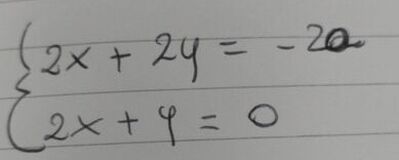 2x + 2y = -20
2x + y = 0